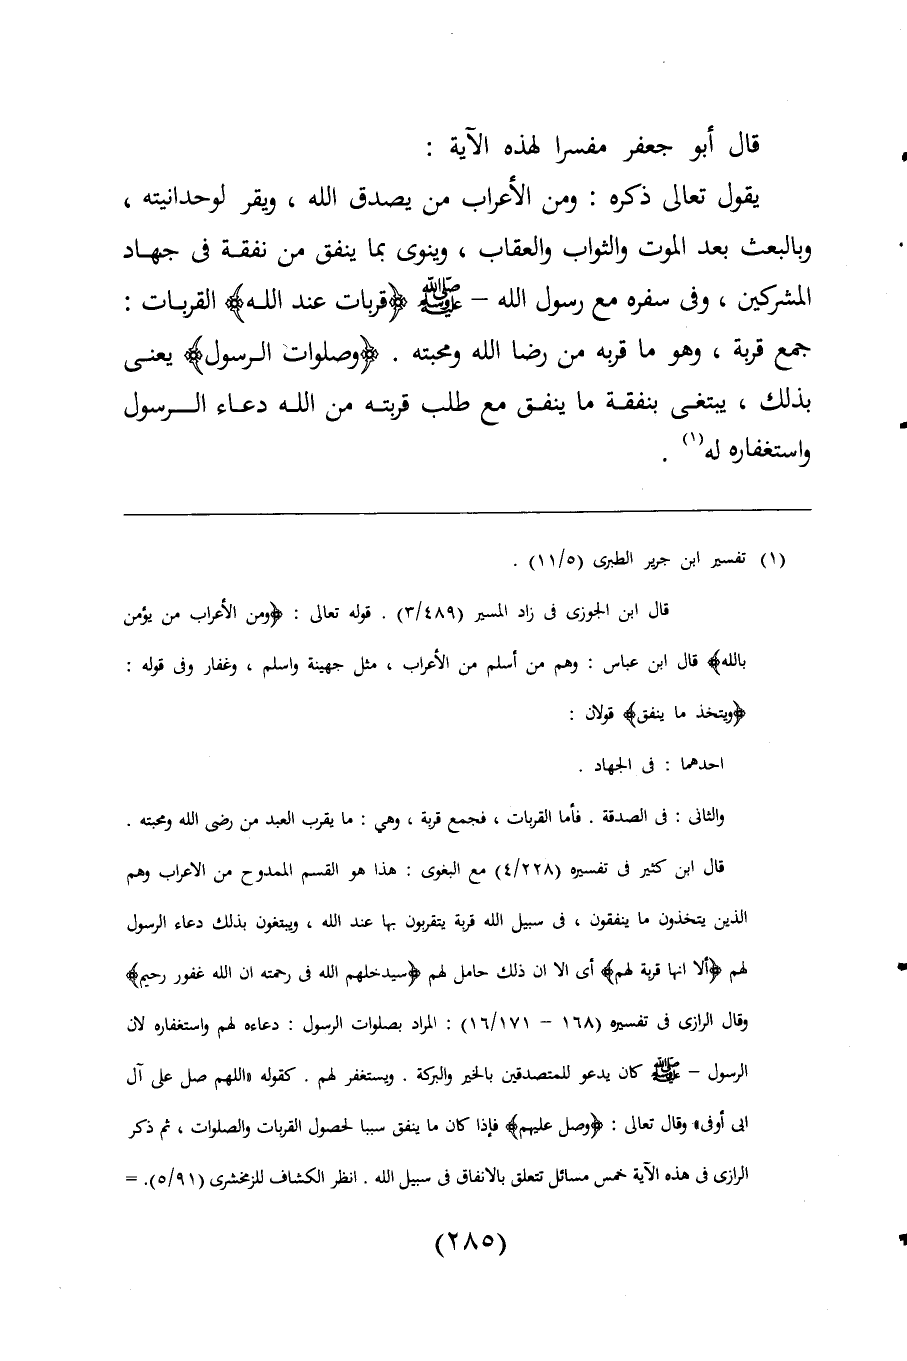 قال أبو جعفر مفسرا لهذه الآية :
يقول تعالى ذكره : ومن الأعراب من يصدق الله ، ويقر لوحدانيته ،
وبالبعث بعد الموت والثواب والعقاب ، وينوى بما ينفق من نفقة فى جهاد
المشركين ، وفى سفره مع رسول الله – ﷺ ﴿قربات عند الله﴾ القربات :
جمع قربة ، وهو ما قربه من رضا الله ومحبته . ﴿وصلوات الرسول﴾ يعنى
بذلك ، يبتغى بنفقة ما ينفق مع طلب قربته من الله دعاء الرسول
واستغفاره له(١) .
(١) تفسير ابن جرير الطبرى (١١/٥) .
قال ابن الجوزى فى زاد المسير (٣/٤٨٩) . قوله تعالى : ﴿ومن الأعراب من يؤمن
بالله﴾ قال ابن عباس : وهم من أسلم من الأعراب ، مثل جهينة واسلم ، وغفار وفى قوله :
﴿ويتخذ ما ينفق﴾ قولان :
احدهما : فى الجهاد .
والثانى : فى الصدقة . فأما القربات ، فجمع قربة ، وهي : ما يقرب العبد من رضى الله ومحبته .
قال ابن كثير فى تفسيره (٤/٢٢٨) مع البغوى : هذا هو القسم الممدوح من الاعراب وهم
الذين يتخذون ما ينفقون ، فى سبيل الله قربة يتقربون بها عند الله ، ويبتغون بذلك دعاء الرسول
لهم ﴿ألا انها قربة لهم﴾ أى الا ان ذلك حامل لهم ﴿سيدخلهم الله فى رحمته ان الله غفور رحيم﴾
وقال الرازى فى تفسيره (١٦٨ – ١٦/١٧١) : المراد بصلوات الرسول : دعاءه لهم واستغفاره لان
الرسول – ﷺ كان يدعو للمتصدقين بالخير والبركة . ويستغفر لهم . كقوله «اللهم صل على آل
ابى أوفى» وقال تعالى : ﴿وصل عليهم﴾ فإذا كان ما ينفق سببا لحصول القربات والصلوات ، ثم ذكر
الرازى فى هذه الآية خمس مسائل تتعلق بالانفاق فى سبيل الله . انظر الكشاف للزمخشرى (٥/٩١). =
(٢٨٥)